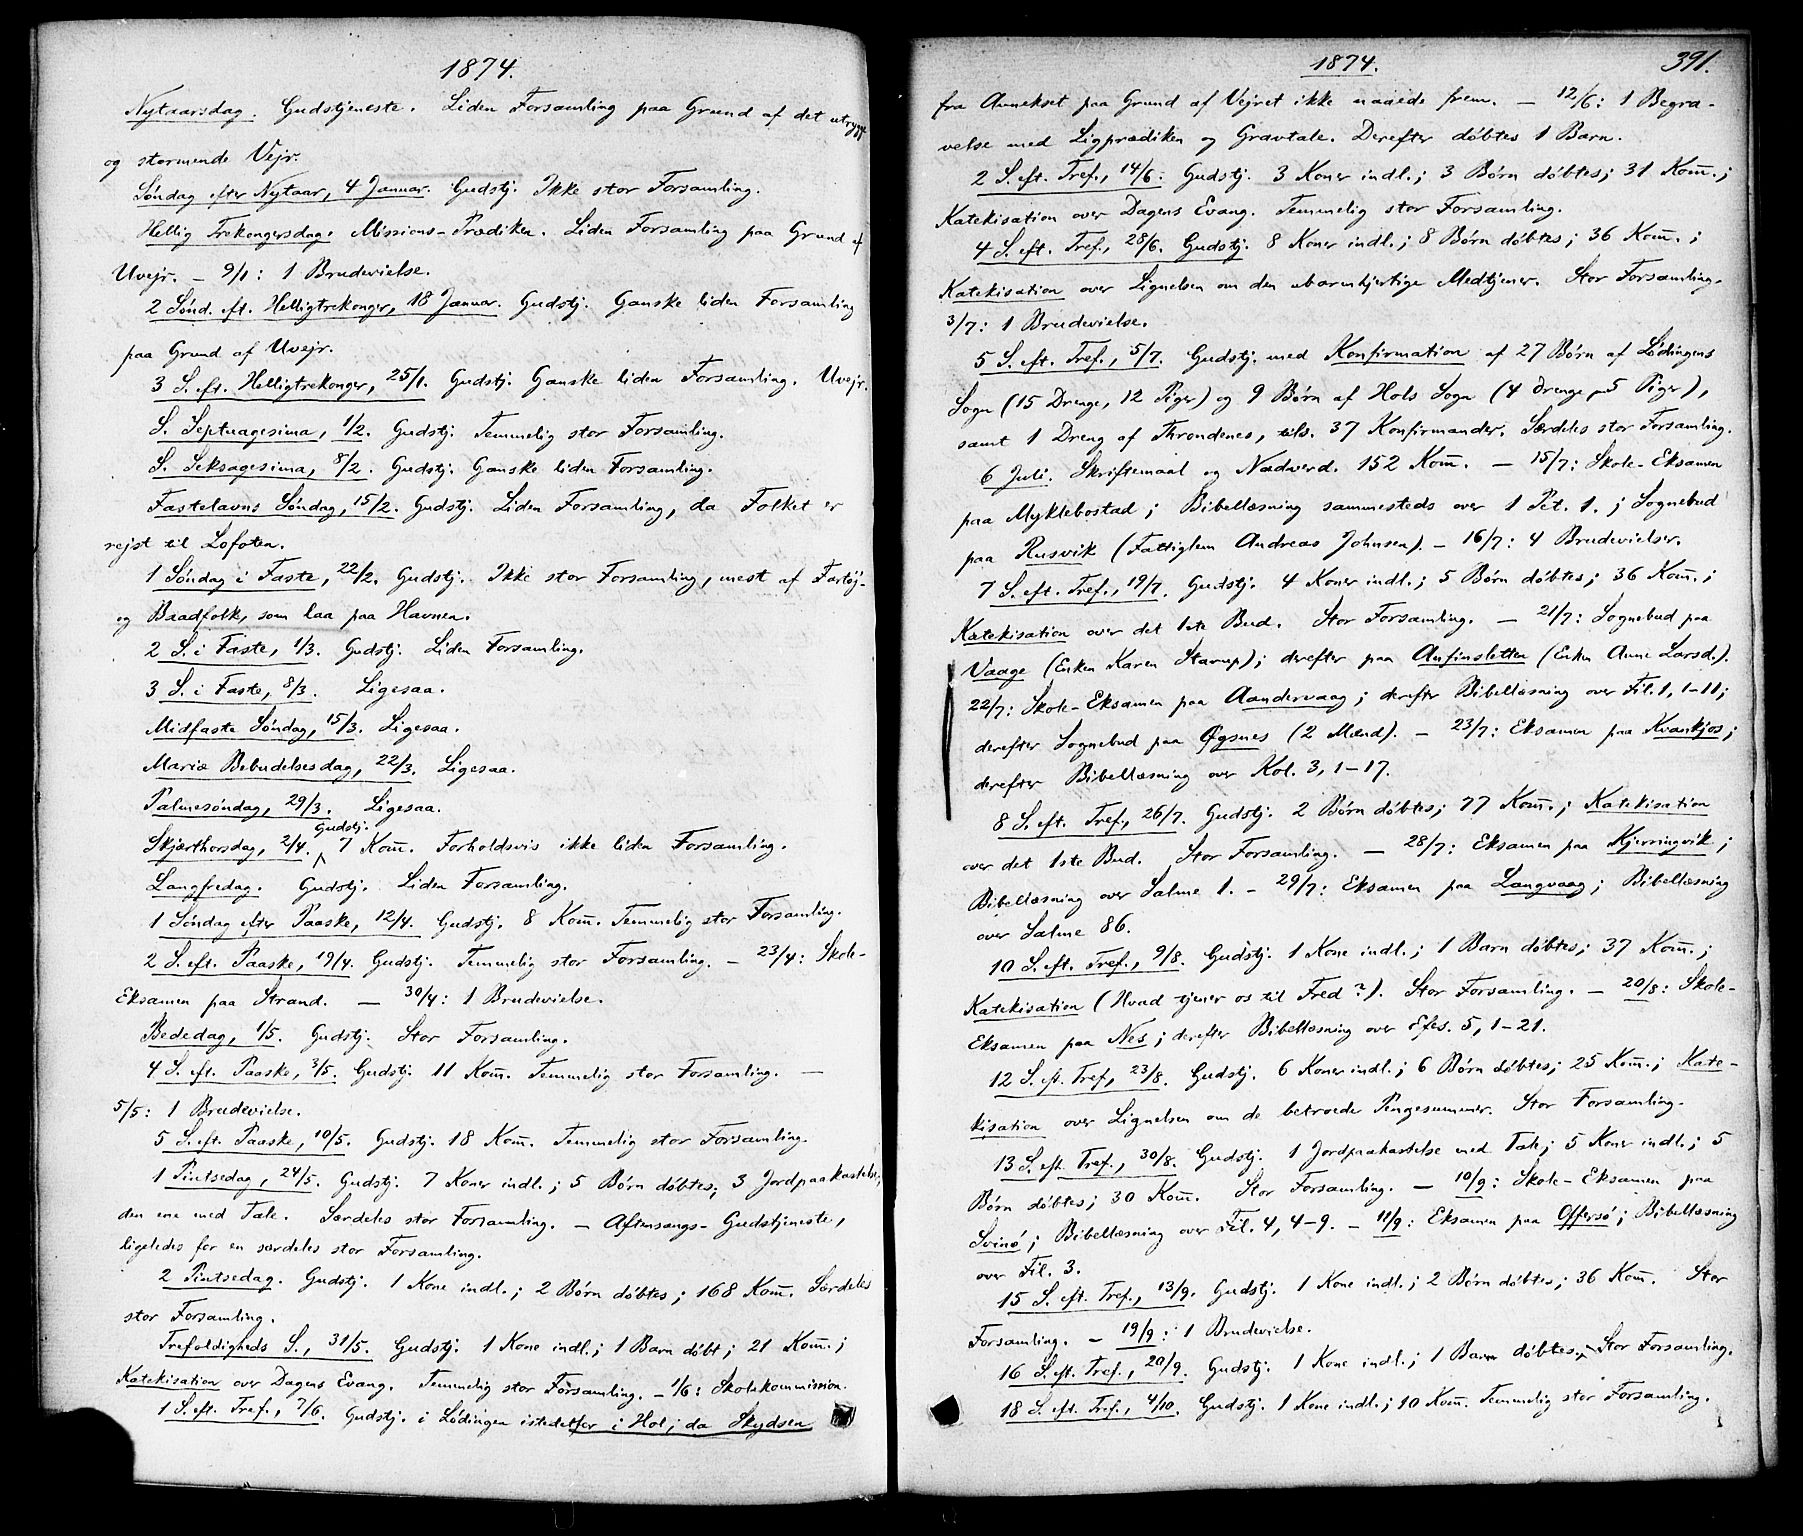 1874.
Nytaarsdag. Gudstjeneste. Liden Forsamling paa Grund af det utrygge
og stormende Vejr.
Søndag efter Nytaar, 4 Januar. Gudstj. Ikke stor Forsamling.
Hellig Trekongersdag. Missions-Prædiken. Liden Forsamling paa Grund af
Uvejr. – 9/1: 1 Brudevielse.
2 Sønd. eft. Helligtrekonger, 18 Januar. Gudstj. Ganske liden Forsamling
paa Grund af Uvejr.
3 S. eft. Helligtrekonger, 25/1. Gudstj. Ganske liden Forsamling. Uvejr.
S. Septuagesima, 1/2. Gudstj. Temmelig stor Forsamling.
S. Seksagesima, 8/2. Gudstj. Ganske liden Forsamling.
Fastelavns Søndag, 15/2. Gudstj. Liden Forsamling, da Folket er
rejst til Lofoten.
1 Søndag i Faste, 22/2. Gudstj. Ikke stor Forsamling, mest af Fartøj-
og Baadfolk, som laa paa Havnen.
2 S. i Faste, 1/3. Gudstj. Liden Forsamling.
3 S. i Faste, 8/3. Ligesaa.
Midfaste Søndag, 15/3. Ligesaa.
Mariæ Bebudelsesdag, 22/3. Ligesaa.
Palmesøndag, 29/3. Ligesaa.
Skjærthorsdag, 2/4. Gudstj. 7 Kom. Forholdsvis ikke liden Forsamling.
Langfredag. Gudstj. Liden Forsamling.
1 Søndag efter Paaske, 12/4. Gudstj. 8 Kom. Temmelig stor Forsamling.
2 S. eft. Paaske, 19/4. Gudstj. Temmelig stor Forsamling. – 23/4: Skole-
Eksamen paa Strand. – 30/4: 1 Brudevielse.
Bededag, 1/5. Gudstj. Stor Forsamling.
4 S. eft. Paaske, 3/5. Gudstj. 11 Kom. Temmelig stor Forsamling. –
5/5: 1 Brudevielse.
5 S. eft. Paaske, 10/5. Gudstj. 18 Kom. Temmelig stor Forsamling.
1 Pintsedag, 24/5. Gudstj. 7 Koner indl.; 5 Børn døbtes; 3 Jordpaakastelser,
den ene med Tale. Særdeles stor Forsamling. – Aftensangs-Gudstjeneste,
ligeledes for en særdeles stor Forsamling.
2 Pintsedag. Gudstj. 1 Kone indl.; 2 Børn døbtes; 168 Kom. Særdeles
stor Forsamling.
Trefoldigheds S., 31/5. Gudstj. 1 Kone indl.; 1 Barn døbt; 21 Kom.;
Katekisation over Dagens Evang. Temmelig stor Forsamling. – 1/6: Skolekommission.
1 S. eft. Tref., 7/6. Gudstj. i Lødingen istedetfor i Hol, da Skydsen
1874. 391.
fra Annekset paa Grund af Vejret ikke naaede frem. – 12/6: 1 Begra-
velse med Ligprædiken og Gravtale. Derefter døbtes 1 Barn.
2 S. eft. Tref., 14/6. Gudstj. 3 Koner indl.; 3 Børn døbtes; 31 Kom.;
Katekisation over Dagens Evang. Temmelig stor Forsamling.
4 S. eft. Tref., 28/6. Gudstj. 8 Koner indl.; 8 Børn døbtes; 36 Kom.;
Katekisation over Lignelsen om den ubarmhjertige Medtjener. Stor Forsamling.
3/7: 1 Brudevielse.
5 S. eft. Tref., 5/7. Gudstj. med Konfirmation af 27 Børn af Lødingens
Sogn (15 Drenge, 12 Piger) og 9 Børn af Hols Sogn (4 Drenge, 5 Piger),
samt 1 Dreng af Throndenes, tils. 37 Konfirmander. Særdeles stor Forsamling.
6 Juli. Skriftemaal og Nadverd. 152 Kom. – 15/7: Skole-Eksamen
paa Myklebostad; Bibellæsning sammesteds over 1 Pet. 1.; Sognebud
paa Rusvik (Fattiglem Andreas Johnsen). – 16/7: 4 Brudevielser.
7 S. eft. Tref., 19/7. Gudstj. 4 Koner indl.; 5 Børn døbtes; 36 Kom.;
Katekisation over det 1ste Bud. Stor Forsamling. – 21/7: Sognebud paa
Vaage (Enken Karen Starup); derefter paa Anfinsletten (Enken Anne Larsd.).
22/7: Skole-Eksamen paa Aandervaag; derefter Bibellæsning over Fil. 1, 1–11;
derefter Sognebud paa Øgsnes (2 Mænd). – 23/7: Eksamen paa Kvankjos;
derefter Bibellæsning over Kol. 3, 1–17.
8 S. eft. Tref., 26/7. Gudstj. 2 Børn døbtes; 77 Kom.; Katekisation
over det 1ste Bud. Stor Forsamling. – 28/7: Eksamen paa Kjerringvik;
Bibellæsning over Salme 1. – 29/7: Eksamen paa Langvaag; Bibellæsning
over Salme 86.
10 S. eft. Tref., 9/8. Gudstj. 1 Kone indl.; 1 Barn døbtes; 37 Kom.;
Katekisation (Hvad tjener os til Fred?). Stor Forsamling. – 20/8: Skole-
Eksamen paa Nes; derefter Bibellæsning over Efes. 5, 1–21.
12 S. eft. Tref., 23/8. Gudstj. 6 Koner indl.; 6 Børn døbtes; 25 Kom.; Kate-
kisation over Lignelsen om de betroede Pengesummer. Stor Forsamling.
13 S. eft. Tref., 30/8. Gudstj. 1 Jordpaakastelse med Tale; 5 Koner indl.; 5
Børn døbtes; 30 Kom. Stor Forsamling. – 10/9: Skole-Eksamen paa
Svinø; Bibellæsning over Fil. 4, 4–9. – 11/9: Eksamen paa Offersø; Bibellæsning
over Fil. 3.
15 S. eft. Tref., 13/9. Gudstj. 1 Kone indl.; 2 Børn døbtes; 36 Kom. Stor
Forsamling. – 19/9: 1 Brudevielse.
16 S. eft. Tref., 20/9. Gudstj. 1 Kone indl.; 1 Barn døbtes. Stor Forsamling.
18 S. eft. Tref., 4/10. Gudstj. 1 Kone indl.; 10 Kom. Temmelig stor Forsamling.